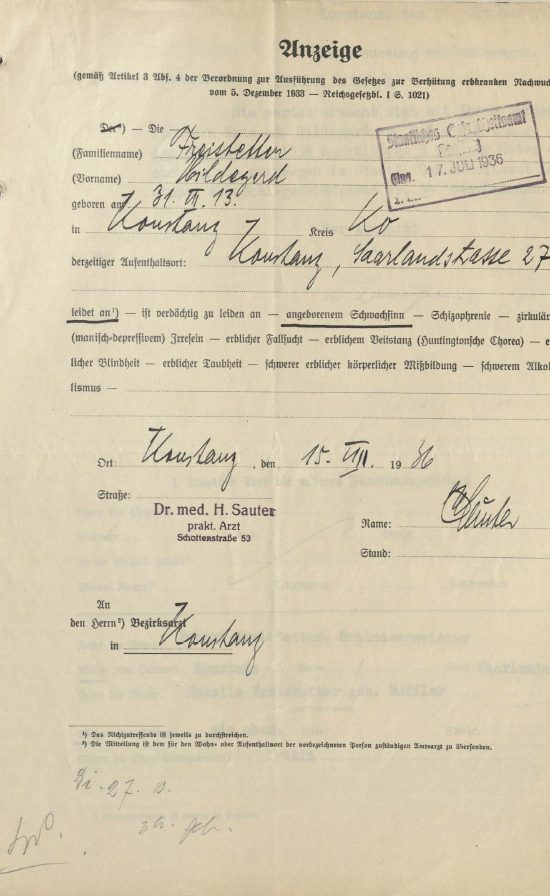 Anzeige
(gemäß Artikel 3 Abs. 4 der Verordnung zur Ausführung des Gesetzes zur Verhütung erbkranken Nachwuc
vom 5. Dezember 1933 — Reichsgesetzbl. I S. 1021)
Staatliches Gesundheitsamt
Eing. 17. JULI 1936
Der²) — Die Freistetter
(Familienname)
(Vorname) Hildegard
geboren am 31. 13.
in Konstanz Kreis Ko
derzeitiger Aufenthaltsort: Konstanz, Saarlandstrasse 27
leidet an¹) — ist verdächtig zu leiden an — angeborenem Schwachsinn — Schizophrenie — zirkulär
(manisch-depressivem) Irresein — erblicher Fallsucht — erblichem Veitstanz (Huntingtonsche Chorea) — e
licher Blindheit — erblicher Taubheit — schwerer erblicher körperlicher Mißbildung — schwerem Alko
lismus —
Ort: Konstanz, den 15. VII. 1936
Straße:
Dr. med. H. Sauter
prakt. Arzt
Schottenstraße 53
Name: Sauter
Stand:
An
den Herrn²) Bezirksarzt
in Konstanz
¹) Das Nichtzutreffende ist jeweils zu durchstreichen.
²) Die Mitteilung ist dem für den Wohn- oder Aufenthaltsort der vorbezeichneten Person zuständigen Amtsarzt zu übersenden.
Di. 27.